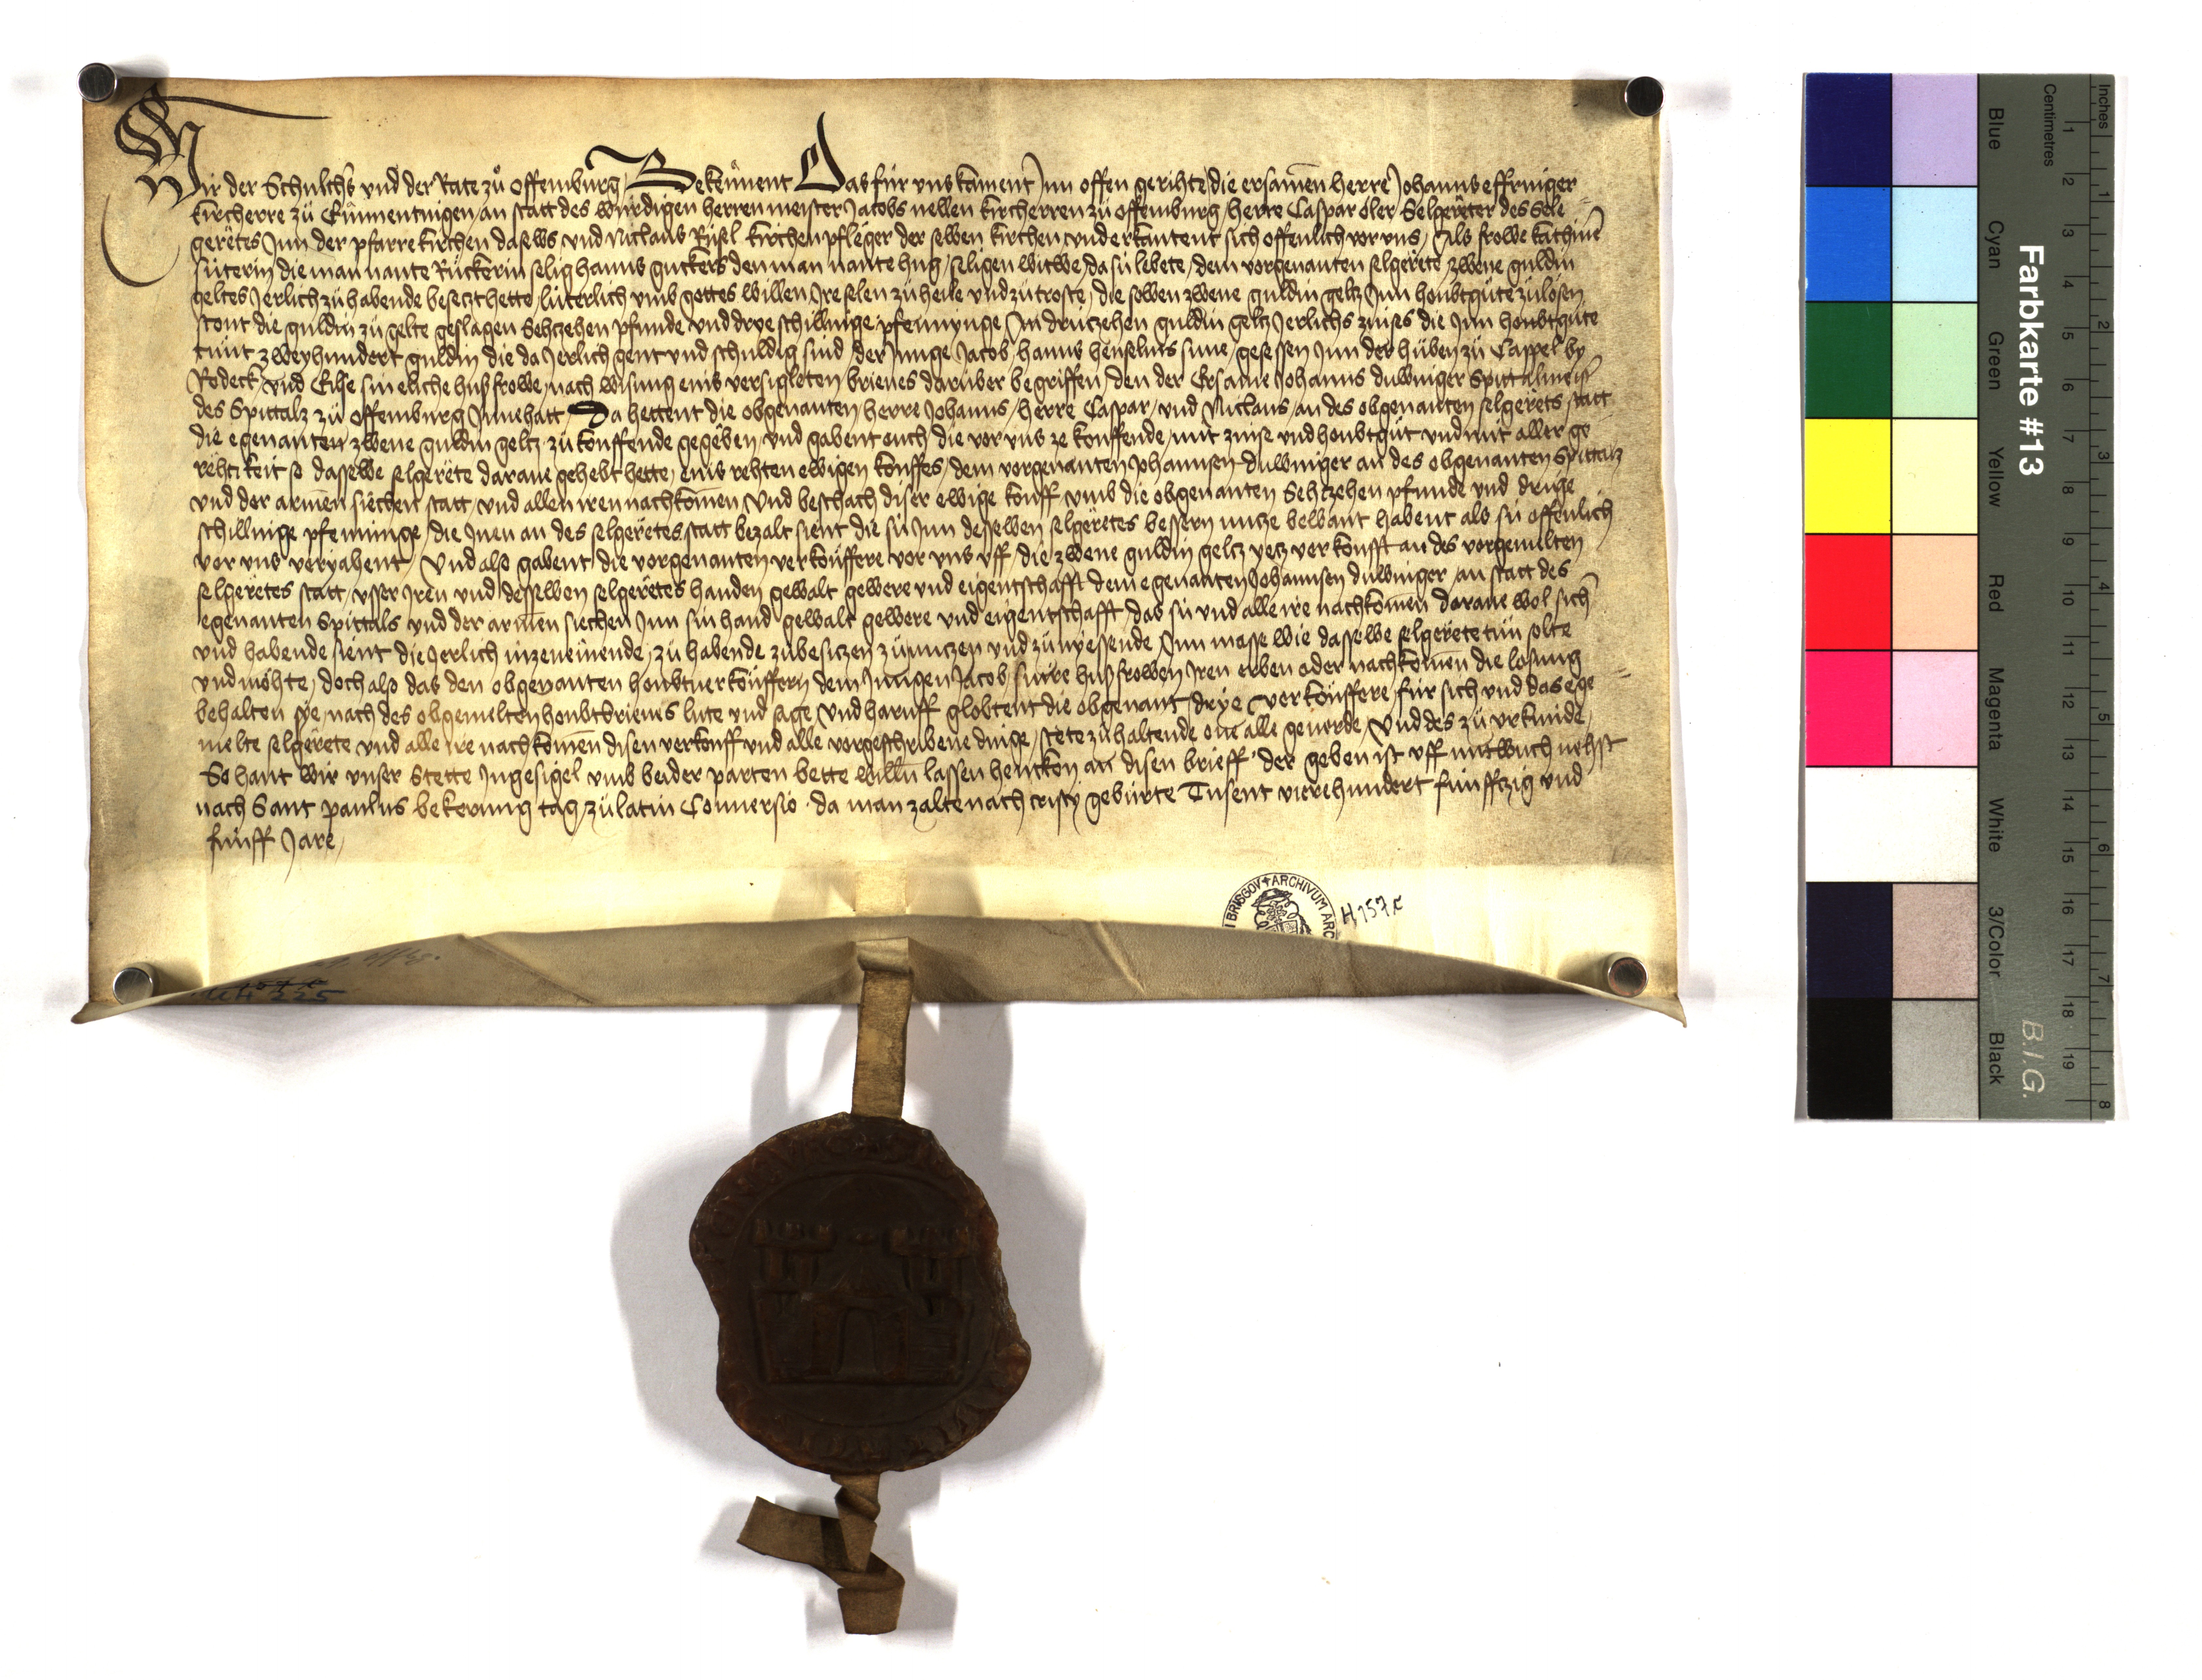 Wir der Schulths und der Rate zů Offemburg Bekennent Das für uns kament Inn offen gerihte die ersamen herre Johanns effringer
kircherre zů an statt des würdigen herren meister Jacobs nellen kircherren zů Offemburg herre Caspar oler Selgereter des Sele
geretes Inn der pfarre kirchen daselbs und Niclaus Rüsel kirchenpfleger der selben kirchen und erkantent sich offenlich vor uns Als frowe kathrin
süterin die man nante Rückerin selig hanns guckers den man nante hug seligen witwe da sü lebete dem vorgenanten selgerete zwene guldin
geltes Jerlich zůhabende besetzt hette luterlich umb gottes willen Ire selen zůheile und zůtroste die selben zwene guldin geltz Inn houbtgůte zůlosen
stont die guldin zů gelte geslagen Sehtzehen pfunde und drye schillinge pfennynge In drützehen guldin geltz Jerlichs zinses die Inn houbtgůte
tůnt zweyhundert guldin die da Jerlich gent und schuldig sind der Junge Jacob hanns henselins sune gesessen Inn der hůben zů Cappel by
Rodeck und Else sin eliche hußfrowe nach wisung eins versigleten brieues darüber begriffen den der Ersame Johanns duwinger Spittalmeist
des Spittalz zů Offemburg Innehatt Da hettent die obgenanten herre Johanns herre Caspar und Niclaus an des obgenanten selgerets statt
die egenanten zwene guldin geltz zů kouffende gegeben und gabent ouch die vor uns ze kouffende mit zinse und houbtgůt und mit aller ge
rehtikeit so dasselbe selgerete darane gehebt hette eins rehten ewigen kouffes dem vorgenanten Johannsen duwinger an des obgenanten Spittalz
und der armen siechen statt und allen iren nachkomen Und beschach diser ewige kouff umb die obgenanten Sehtzehen pfunde und drüge
schillinge pfenninge die Inen an des selgeretes statt bezalt sient die sü Inn desselben selgeretes bessern nutze bewant habent als sü offenlich
vor uns veryahent Und also gabent die vorgenanten verkouffere vor uns uff die zwene guldin geltz yetz verkoufft an des vorgemelten
selgeretes statt usser Iren und desselben selgeretes handen gewalt gewere und eigentschafft dem egenanten Johannsen duwinger an statt des
egenanten Spittals und der armen siechen Inn sin hand gewalt gewere und eigentschafft das sü und alle ire nachkomen darane wol sich
und habende sient die Jerlich inzenemende zů habende zůbesitzen zůnutzen und zůnyessende Inn masse wie dasselbe selgerete tůn solte
und möhte doch also das den obgenanten houbtverkouffern dem Jungen Jacob sinre hußfrowen Iren erben oder nachkomen die losung
behalten sye nach des obgemelten houbtbrieues lute und sage Und haruff globtent die obgenant drye verkouffere für sich und das ege
melte selgerete und alle ire nachkomen disen verkouff und alle vorgeschribene dinge stete zůhaltende one alle geuerde Und des zů urkunde
So hant wir unser Stette Ingesigel umb beider parten bette willn lassen hencken an disen brieff der geben ist uff mitwuch nehst
nach Sant paulus bekerung tag zů latin Conuersio da man zalte nach cristy gebürte Tusent vierehundert fünffzig und
fünff Jare
BRISGOV + ARCHIVUM ARC
H 157 e
225
Farbkarte #13
B.I.G.
Blue
Cyan
Green
Yellow
Red
Magenta
White
3/Color
Black
Centimetres
1 2 3 4 5 6 7 8 9 10 11 12 13 14 15 16 17 18 19
Inches
1 2 3 4 5 6 7 8